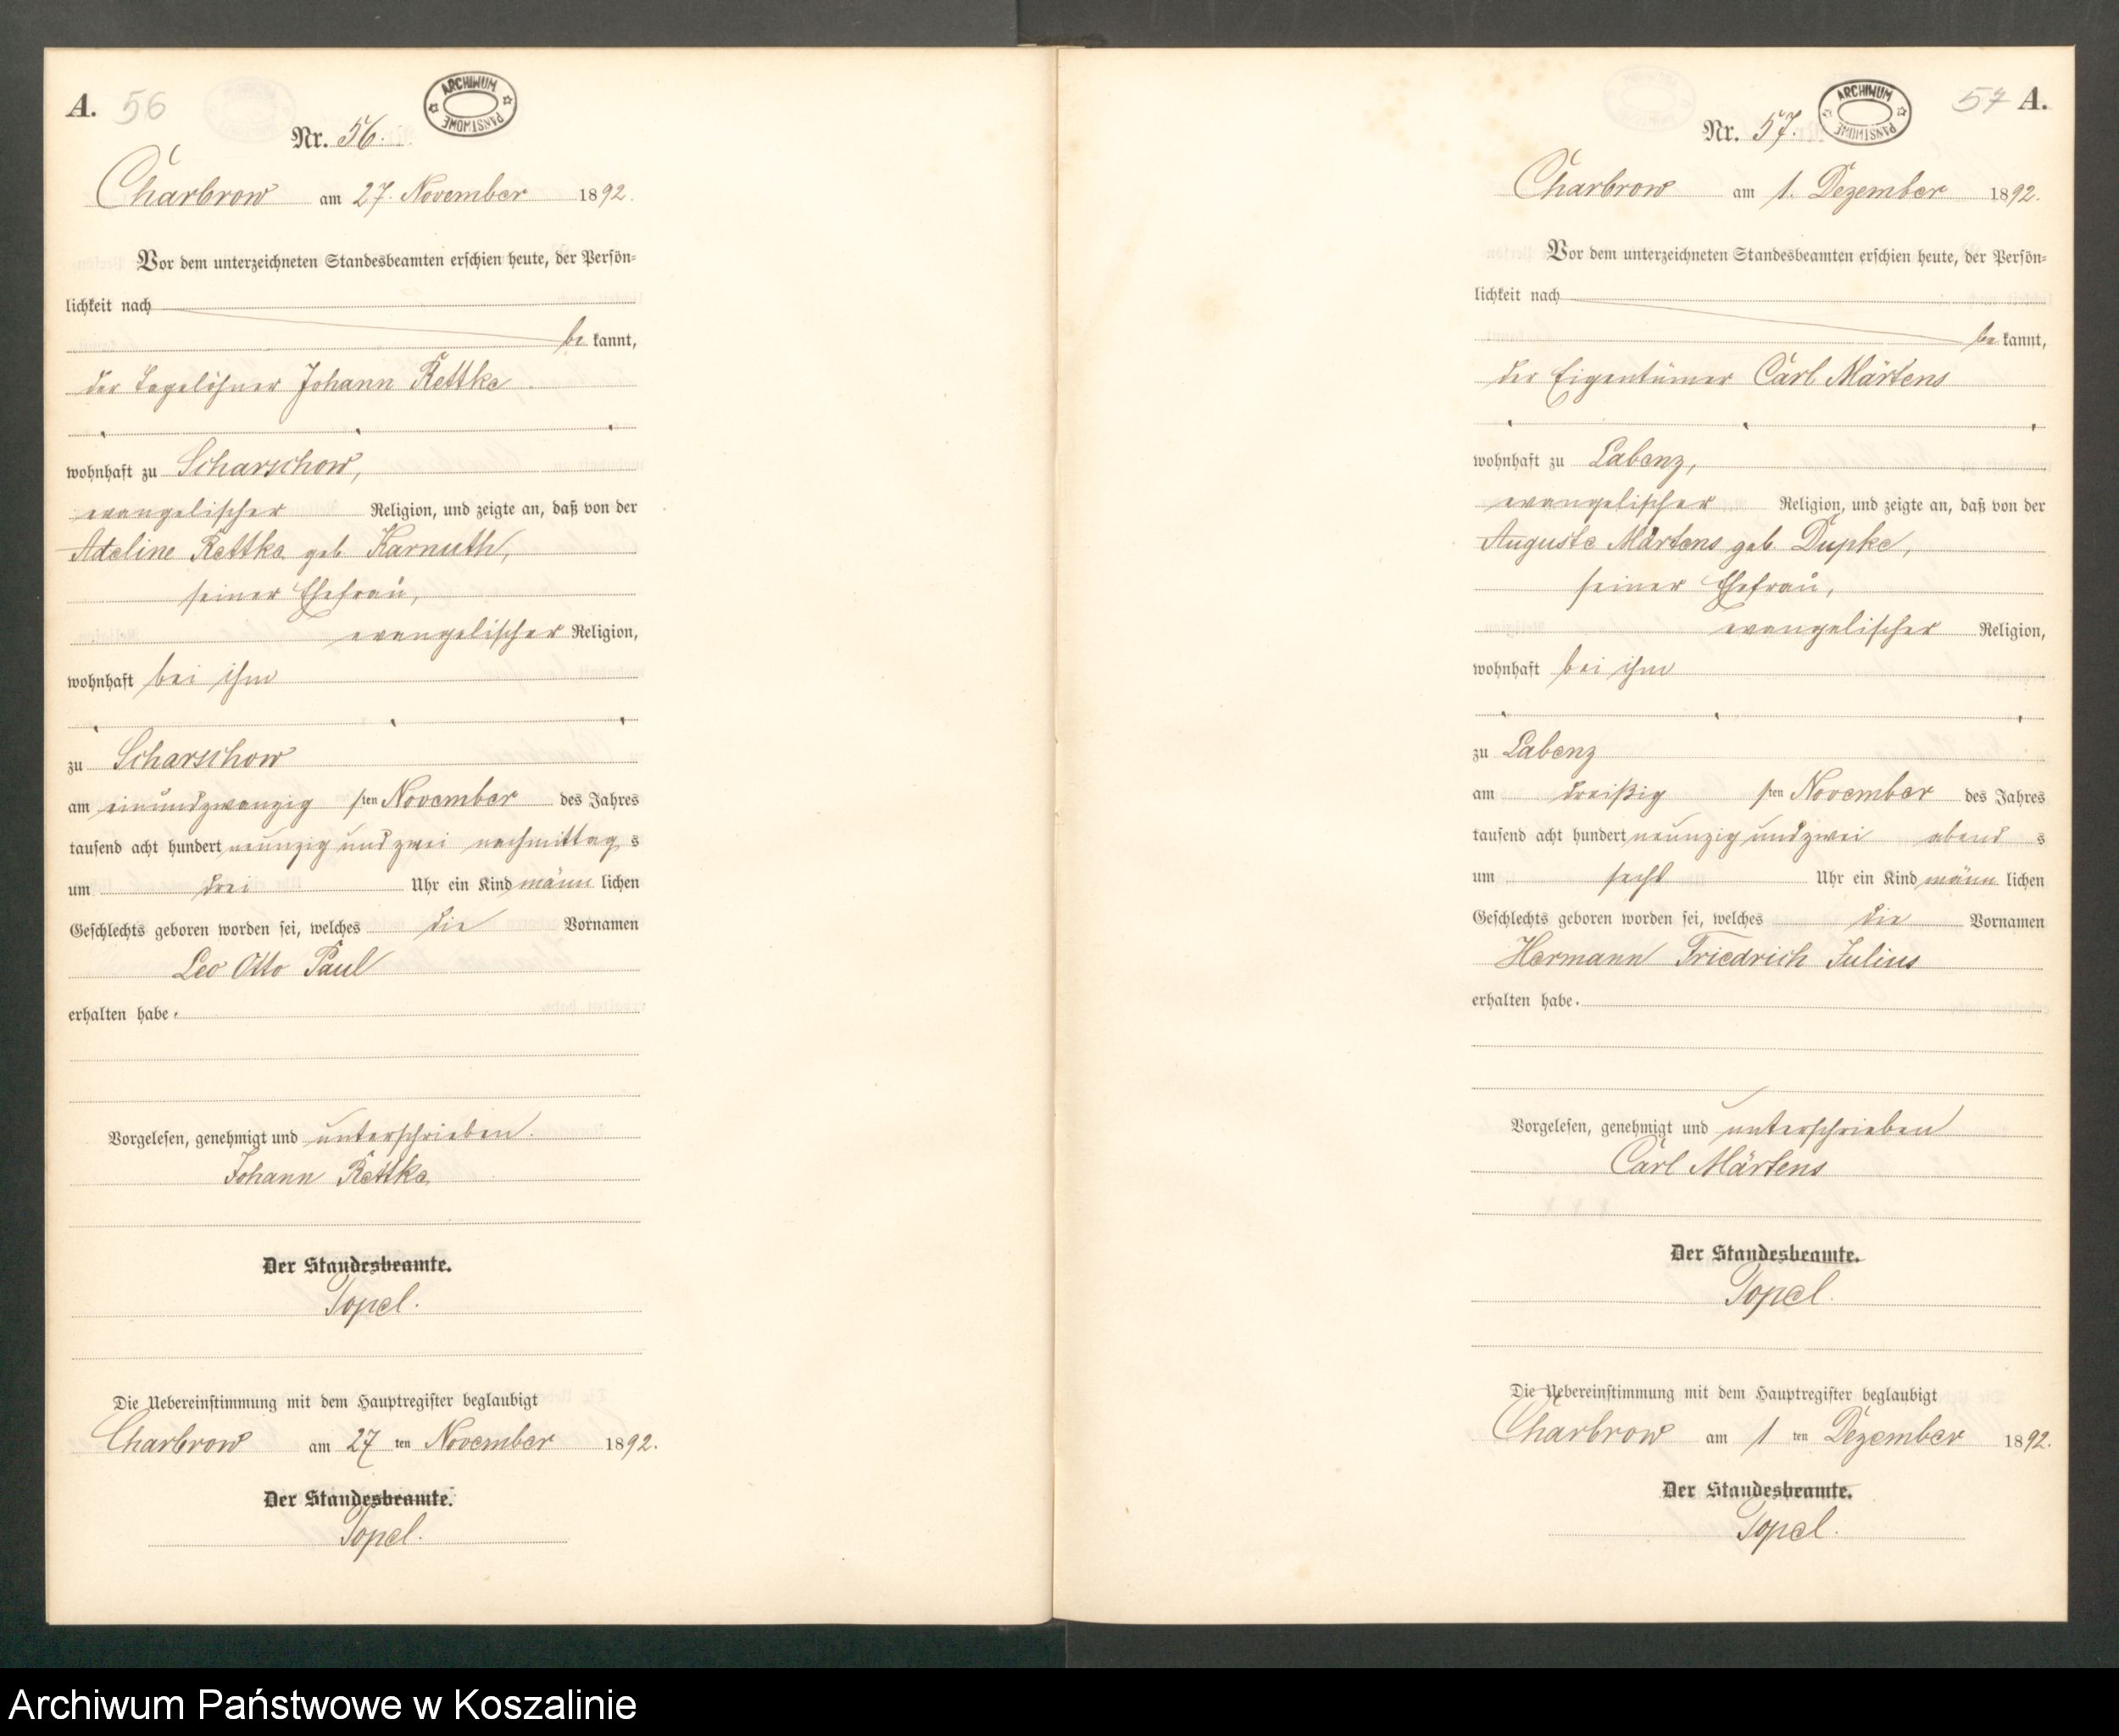 A. 56
ARCHIWUM PAŃSTWOWE
Nr. 56.
Charbrow am 27. November 1892.
Vor dem unterzeichneten Standesbeamten erschien heute, der Persön-
lichkeit nach
be kannt,
der Tagelöhner Johann Rettke
wohnhaft zu Scharschow,
evangelischer Religion, und zeigte an, daß von der
Adeline Rettke geb. Karnuth,
seiner Ehefrau,
evangelischer Religion,
wohnhaft bei ihm
zu Scharschow
am einundzwanzig sten November des Jahres
tausend acht hundert neunzig und zwei nachmittag s
um drei Uhr ein Kind männ lichen
Geschlechts geboren worden sei, welches die Vornamen
Leo Otto Paul
erhalten habe.
Vorgelesen, genehmigt und unterschrieben.
Johann Rettke
Der Standesbeamte.
Topel.
Die Uebereinstimmung mit dem Hauptregister beglaubigt
Charbrow am 27 ten November 1892.
Der Standesbeamte.
Topel.
57 A.
ARCHIWUM PAŃSTWOWE
Nr. 57.
Charbrow am 1. Dezember 1892.
Vor dem unterzeichneten Standesbeamten erschien heute, der Persön-
lichkeit nach
be kannt,
der Eigentümer Carl Märtens
wohnhaft zu Labenz,
evangelischer Religion, und zeigte an, daß von der
Auguste Märtens geb. Dupke,
seiner Ehefrau,
evangelischer Religion,
wohnhaft bei ihm
zu Labenz
am dreißig sten November des Jahres
tausend acht hundert neunzig und zwei abend s
um sechs Uhr ein Kind männ lichen
Geschlechts geboren worden sei, welches die Vornamen
Hermann Friedrich Julius
erhalten habe.
Vorgelesen, genehmigt und unterschrieben
Carl Märtens
Der Standesbeamte.
Topel.
Die Uebereinstimmung mit dem Hauptregister beglaubigt
Charbrow am 1 ten Dezember 1892.
Der Standesbeamte.
Topel.
Archiwum Państwowe w Koszalinie